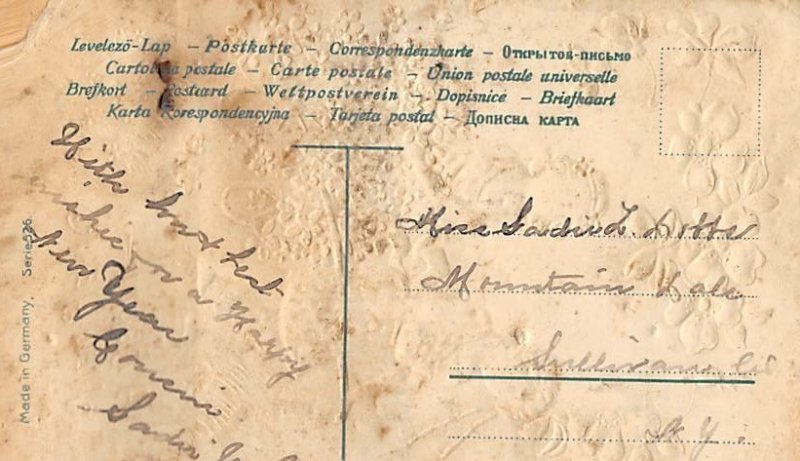 Levelező-Lap – Postkarte – Correspondenzkarte – Открытое-письмо
Cartolina postale – Carte postale – Union postale universelle
Brefkort – Postcard – Weltpostverein – Dopisnice – Briefkaart
Karta Korespondencyjna – Tarjeta postal – Дописна карта
Made in Germany. Serie 526
With
wishes for a Happy
New Year
Cousin
Sadie
Miss Sadie L.
Mountain Dale
Sullivan Co
N.Y.